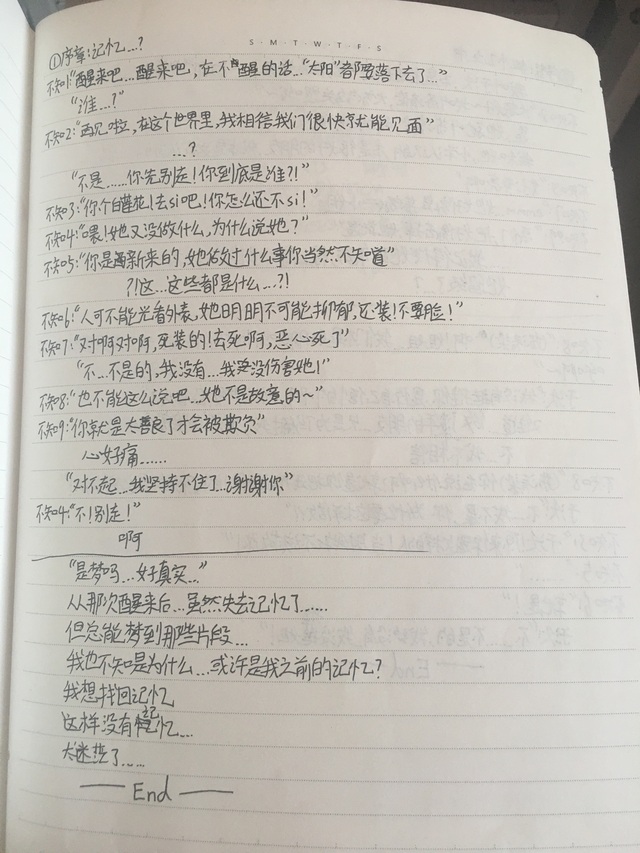 S·M·T·W·T·F·S
①序章:记忆...?
不知1:"醒来吧...醒来吧,在不醒的话..."太阳"都要落下去了..."
"谁...?"
不知2:"再见啦,在这个世界里,我相信我们很快就能见面"
...?
"不是......你先别走!你到底是谁?!"
不知3:"你个白莲花!去si吧!你怎么还不si!"
不知4:"喂!她又没做什么,为什么说她?"
不知5:"你是新来的,她做过什么事你当然不知道"
?!这...这些都是什么...?!
不知6:"人可不能光看外表,她明明不可能抑郁,还装!不要脸!"
不知7:"对啊对啊,死装的!去死啊,恶心死了"
"不...不是的,我没有...我没伤害她!"
不知8:"也不能这么说吧...她不是故意的~"
不知9:"你就是太善良了才会被欺负"
心好痛......
"对不起...我坚持不住了...谢谢你"
不知4:"不!别走!"
啊
"是梦吗...好真实..."
从那次醒来后...虽然失去记忆了......
但总能梦到那些片段...
我也不知是为什么...或许是我之前的记忆?
我想找回记忆
这样没有记忆...
太迷茫了......
—— End ——